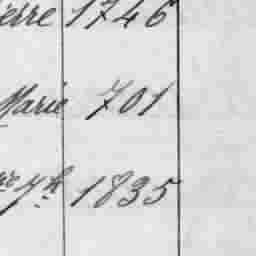 ierre 1746
Marie 701
1835